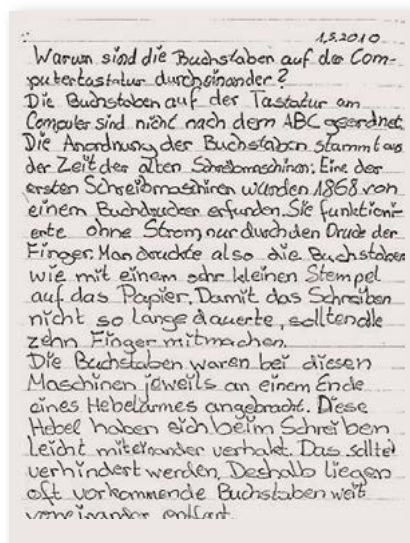 1.3.2010
Warum sind die Buchstaben auf der Com-
putertastatur durcheinander?
Die Buchstaben auf der Tastatur am
Computer sind nicht nach dem ABC geordnet.
Die Anordnung der Buchstaben stammt aus
der Zeit der alten Schreibmaschinen: Eine der
ersten Schreibmaschinen wurden 1868 von
einem Buchdrucker erfunden. Sie funktioni-
erte ohne Strom, nur durch den Druck der
Finger. Man druckte also die Buchstaben
wie mit einem sehr kleinen Stempel
auf das Papier. Damit das Schreiben
nicht so lange dauerte, sollten alle
zehn Finger mitmachen.
Die Buchstaben waren bei diesen
Maschinen jeweils an einem Ende
eines Hebelarmes angebracht. Diese
Hebel haben sich beim Schreiben
leicht miteinander verhakt. Das sollte
verhindert werden. Deshalb liegen
oft vorkommende Buchstaben weit
voneinander entfant.